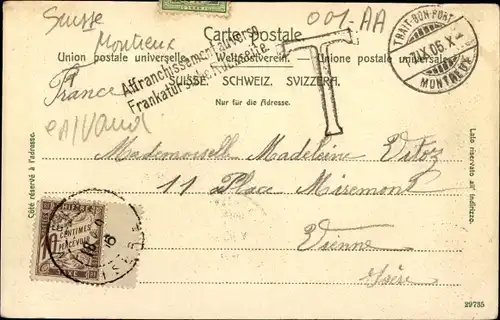 Suisse
Montreux
001-AA
Carte Postale.
Union postale universelle. – Weltpostverein. – Unione postale universale.
SUISSE. SCHWEIZ. SVIZZERA.
Nur für die Adresse.
Affranchissement au verso
Frankatur siehe Rückseite
T
TRAIT-BON-PORT
MONTREUX
7.IX.06.X
France
Vaud
Côté réservé à l'adresse.
Lato riservato all' indirizzo.
Mademoiselle Madeleine
11 Place Miremont
Vienne
Isère
10
CENTIMES
A PERCEVOIR
TAXE
29735